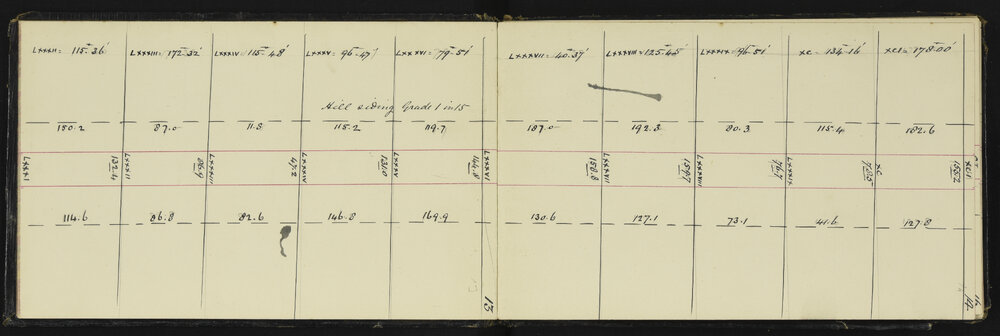 LXXXII = 115°-36' LXXXIII = 172-32' LXXXIV = 115°-48' LXXXV = 96-47' LXXXVI = 79-51'
Hill siding Grade 1 in 15
150.2 87.0 11.8 115.2 89.7
LXXXI 132.4 LXXXII LXXXIII 47.2 LXXXIV 131.0 LXXXV 144.8 LXXXVI
114.6 86.8 82.6 146.8 169.9
13
LXXXVII = 40-37' LXXXVIII = 125-45' LXXXIX = 96-51' XC = 134-16' XCI = 178-00'
187.0 192.8 80.3 115.4 182.6
158.8 LXXXVII 159.7 LXXXVIII 76.7 LXXXIX XC 155.2 XCI
130.6 127.1 73.1 41.6 127.8